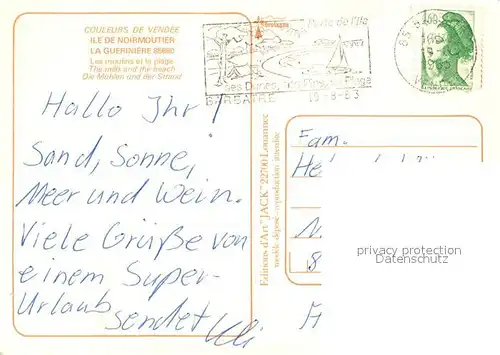 COULEURS DE VENDÉE
ILE DE NOIRMOUTIER
LA GUERINIÈRE (85680)
Les moulins et la plage
The mills and the beach
Die Mühlen und der Strand
Bretagne
Porte de l'Ile
ses Dunes
Plage
BARBATRE 18-8-83
Hallo Ihr!
Sand, Sonne,
Meer und Wein.
Viele Grüße von
einem Super-
Urlaub
sendet Uli
Editions d'Art "JACK" 22700 Louannec
modèle déposé - reproduction interdite
Fam.
He
N
8
privacy protection
Datenschutz